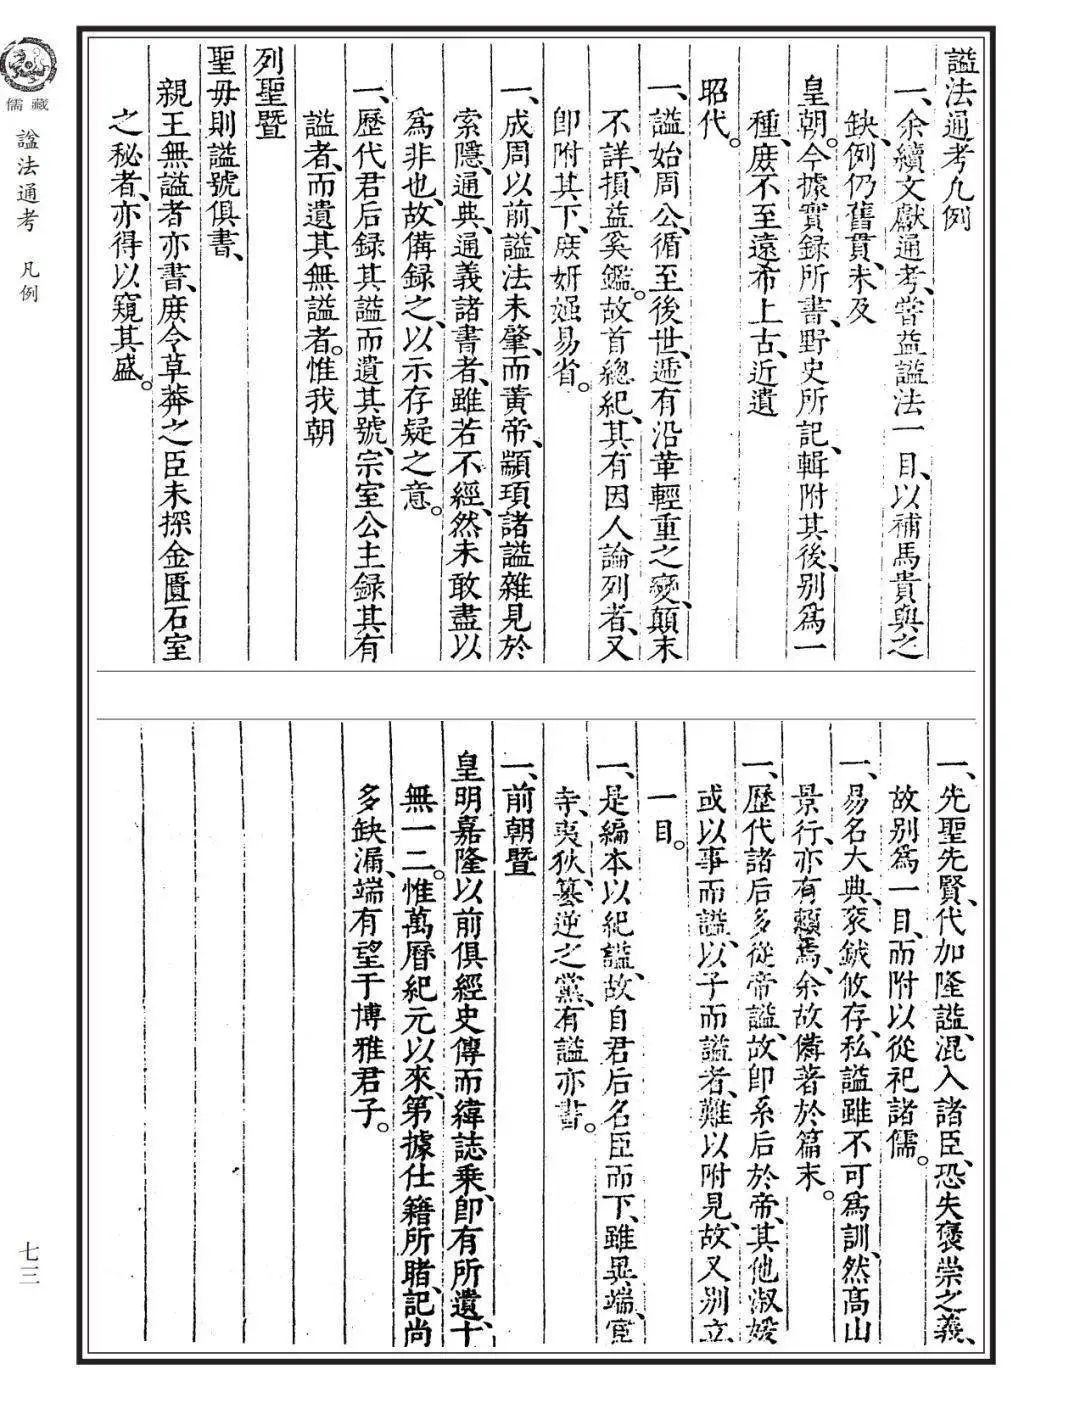 謚法通考凡例
一、余續文獻通考、嘗益謚法一目、以補馬貴與之
缺、例仍舊貫、未及
皇朝。今據實録所書、野史所記、輯附其後、别爲一
種、庻不至遠希上古、近遺
昭代。
一、謚始周公、循至後世、遞有沿革輕重之變、顛末
不詳、損益奚鑑。故首總紀、其有因人論列者、又
即附其下、庻妍媸易省。
一、成周以前、謚法未肇、而黄帝、顓頊諸謚雜見於
索隱、通典、通義諸書者、雖若不經、然未敢盡以
爲非也、故備録之、以示存疑之意。
一、歷代君后録其謚而遺其號、宗室公主録其有
謚者、而遺其無謚者。惟我朝
列聖暨
聖母則謚號俱書、
親王無謚者亦書、庻令草莽之臣未探金匱石室
之秘者、亦得以窺其盛。
一、先聖先賢、代加隆謚、混入諸臣、恐失褒崇之義、
故别爲一目、而附以從祀諸儒。
一、易名大典、衮鉞攸存、私謚雖不可爲訓、然高山
景行、亦有賴焉、余故備著於篇末。
一、歷代諸后多從帝謚、故即系后於帝、其他淑媛
或以事而謚、以子而謚者、難以附見、故又别立
一目。
一、是編本以紀謚、故自君后名臣而下、雖異端、宦
寺、夷狄、簒逆之黨、有謚亦書。
一、前朝暨
皇明嘉隆以前俱經史傳而緯誌乘、即有所遺、十
無一二。惟萬曆紀元以來、第據仕籍所睹、記尚
多缺漏、端有望于博雅君子。
儒藏
謚法通考 凡例
七三